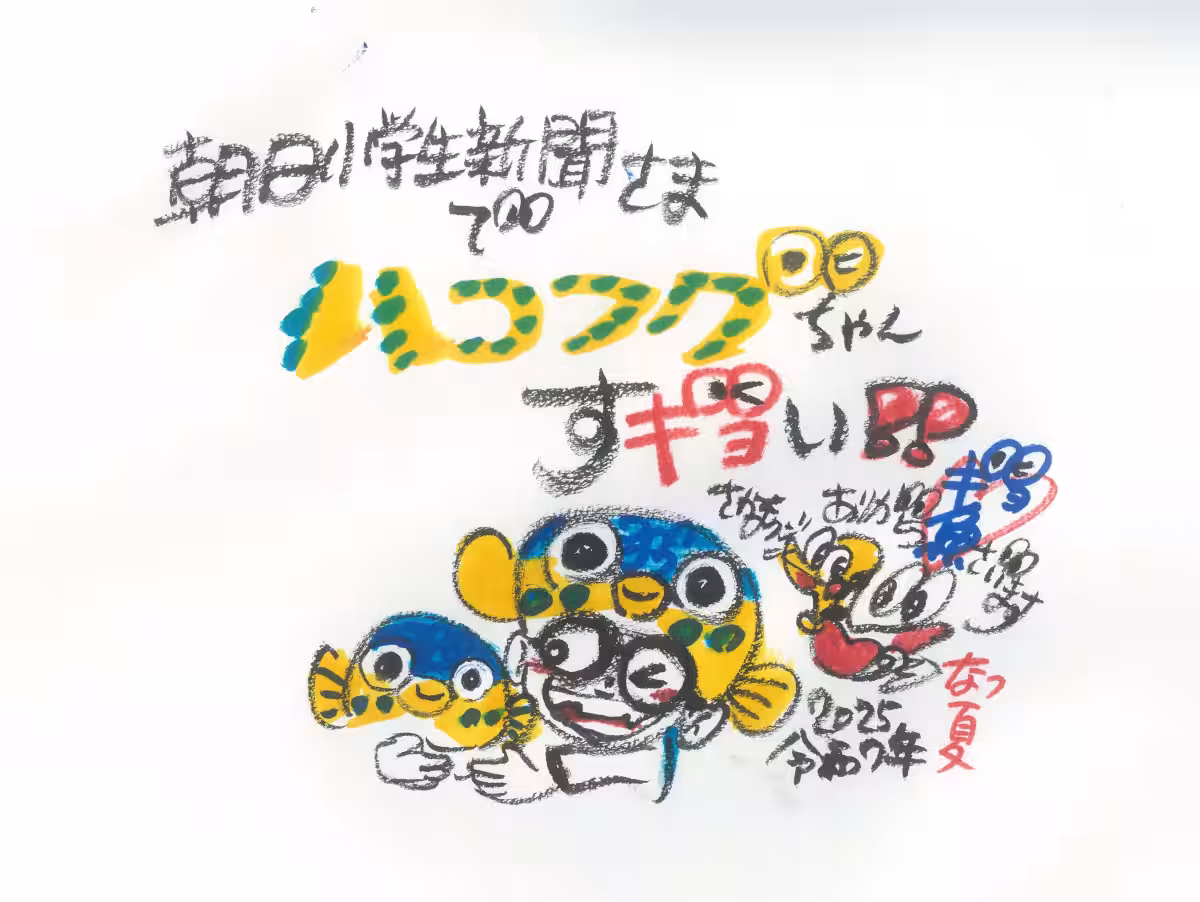 朝日小学生新聞さま
で
ハコフグちゃん
すギョい!!
ありがとう
ギョ
魚
ざいます
2025
令和7年
なつ
夏